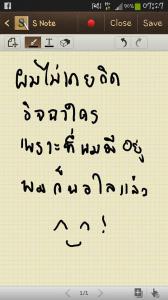 90% 07:27
S Note Close Save
ผมไม่เคยคิด
อิจฉาใคร
เพราะที่ผมมี อยู่
ผมก็พอใจแล้ว
^_^!
1/1